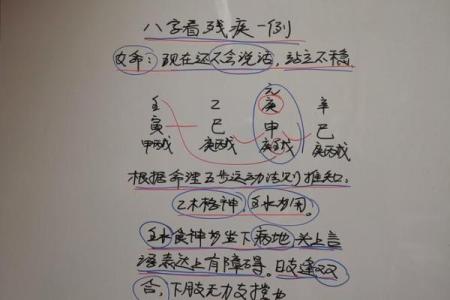 八字看残疾一例
女命：现在还不会说话，站立不稳。
元
壬 乙 庚 辛
寅 巳 申 巳
甲丙戊 庚丙戊 庚壬戊 庚丙戊
根据命理五步运动法则推知：
乙木格神，壬水为用。
壬水食神为坐下病地 关上言
语表达上有障碍。日支逢双
合，下肢无力支撑女